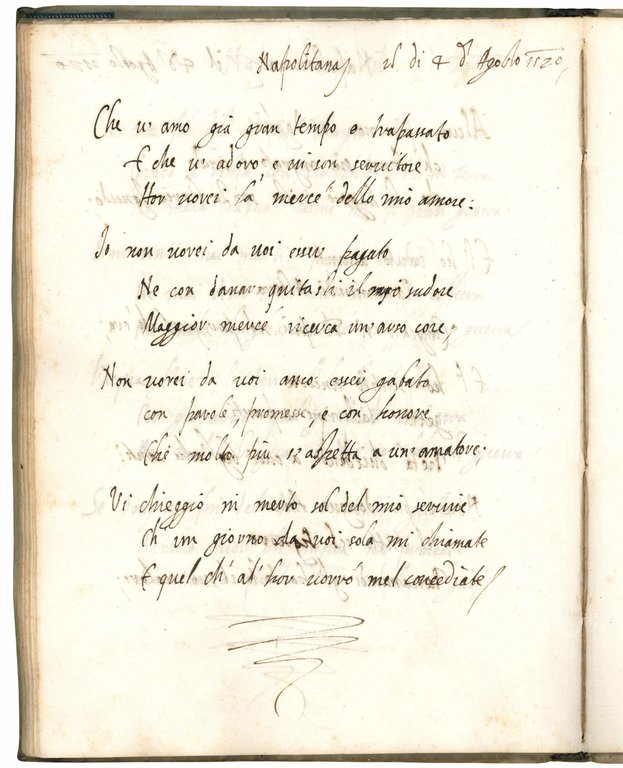 Napolitana il di 4 d'Agosto 1520
Che v' amo già gran tempo e trapassato
E che v' adoro e vi son servitore
Hor vorei la mercè dello mio amore:
Io non vorei da voi esser pagato
Ne con danar quitasti il mio sudore
Maggior mercè ricerca un' arso core,
Non vorei da voi anco esser gabato
con parole, promesse, e con honore
Che molto più s'aspetta a un' amatore;
Vi chieggio in merto sol del mio servire
Ch' un giorno da voi sola mi chiamate
E quel ch' al' hor vorrò mel concediate